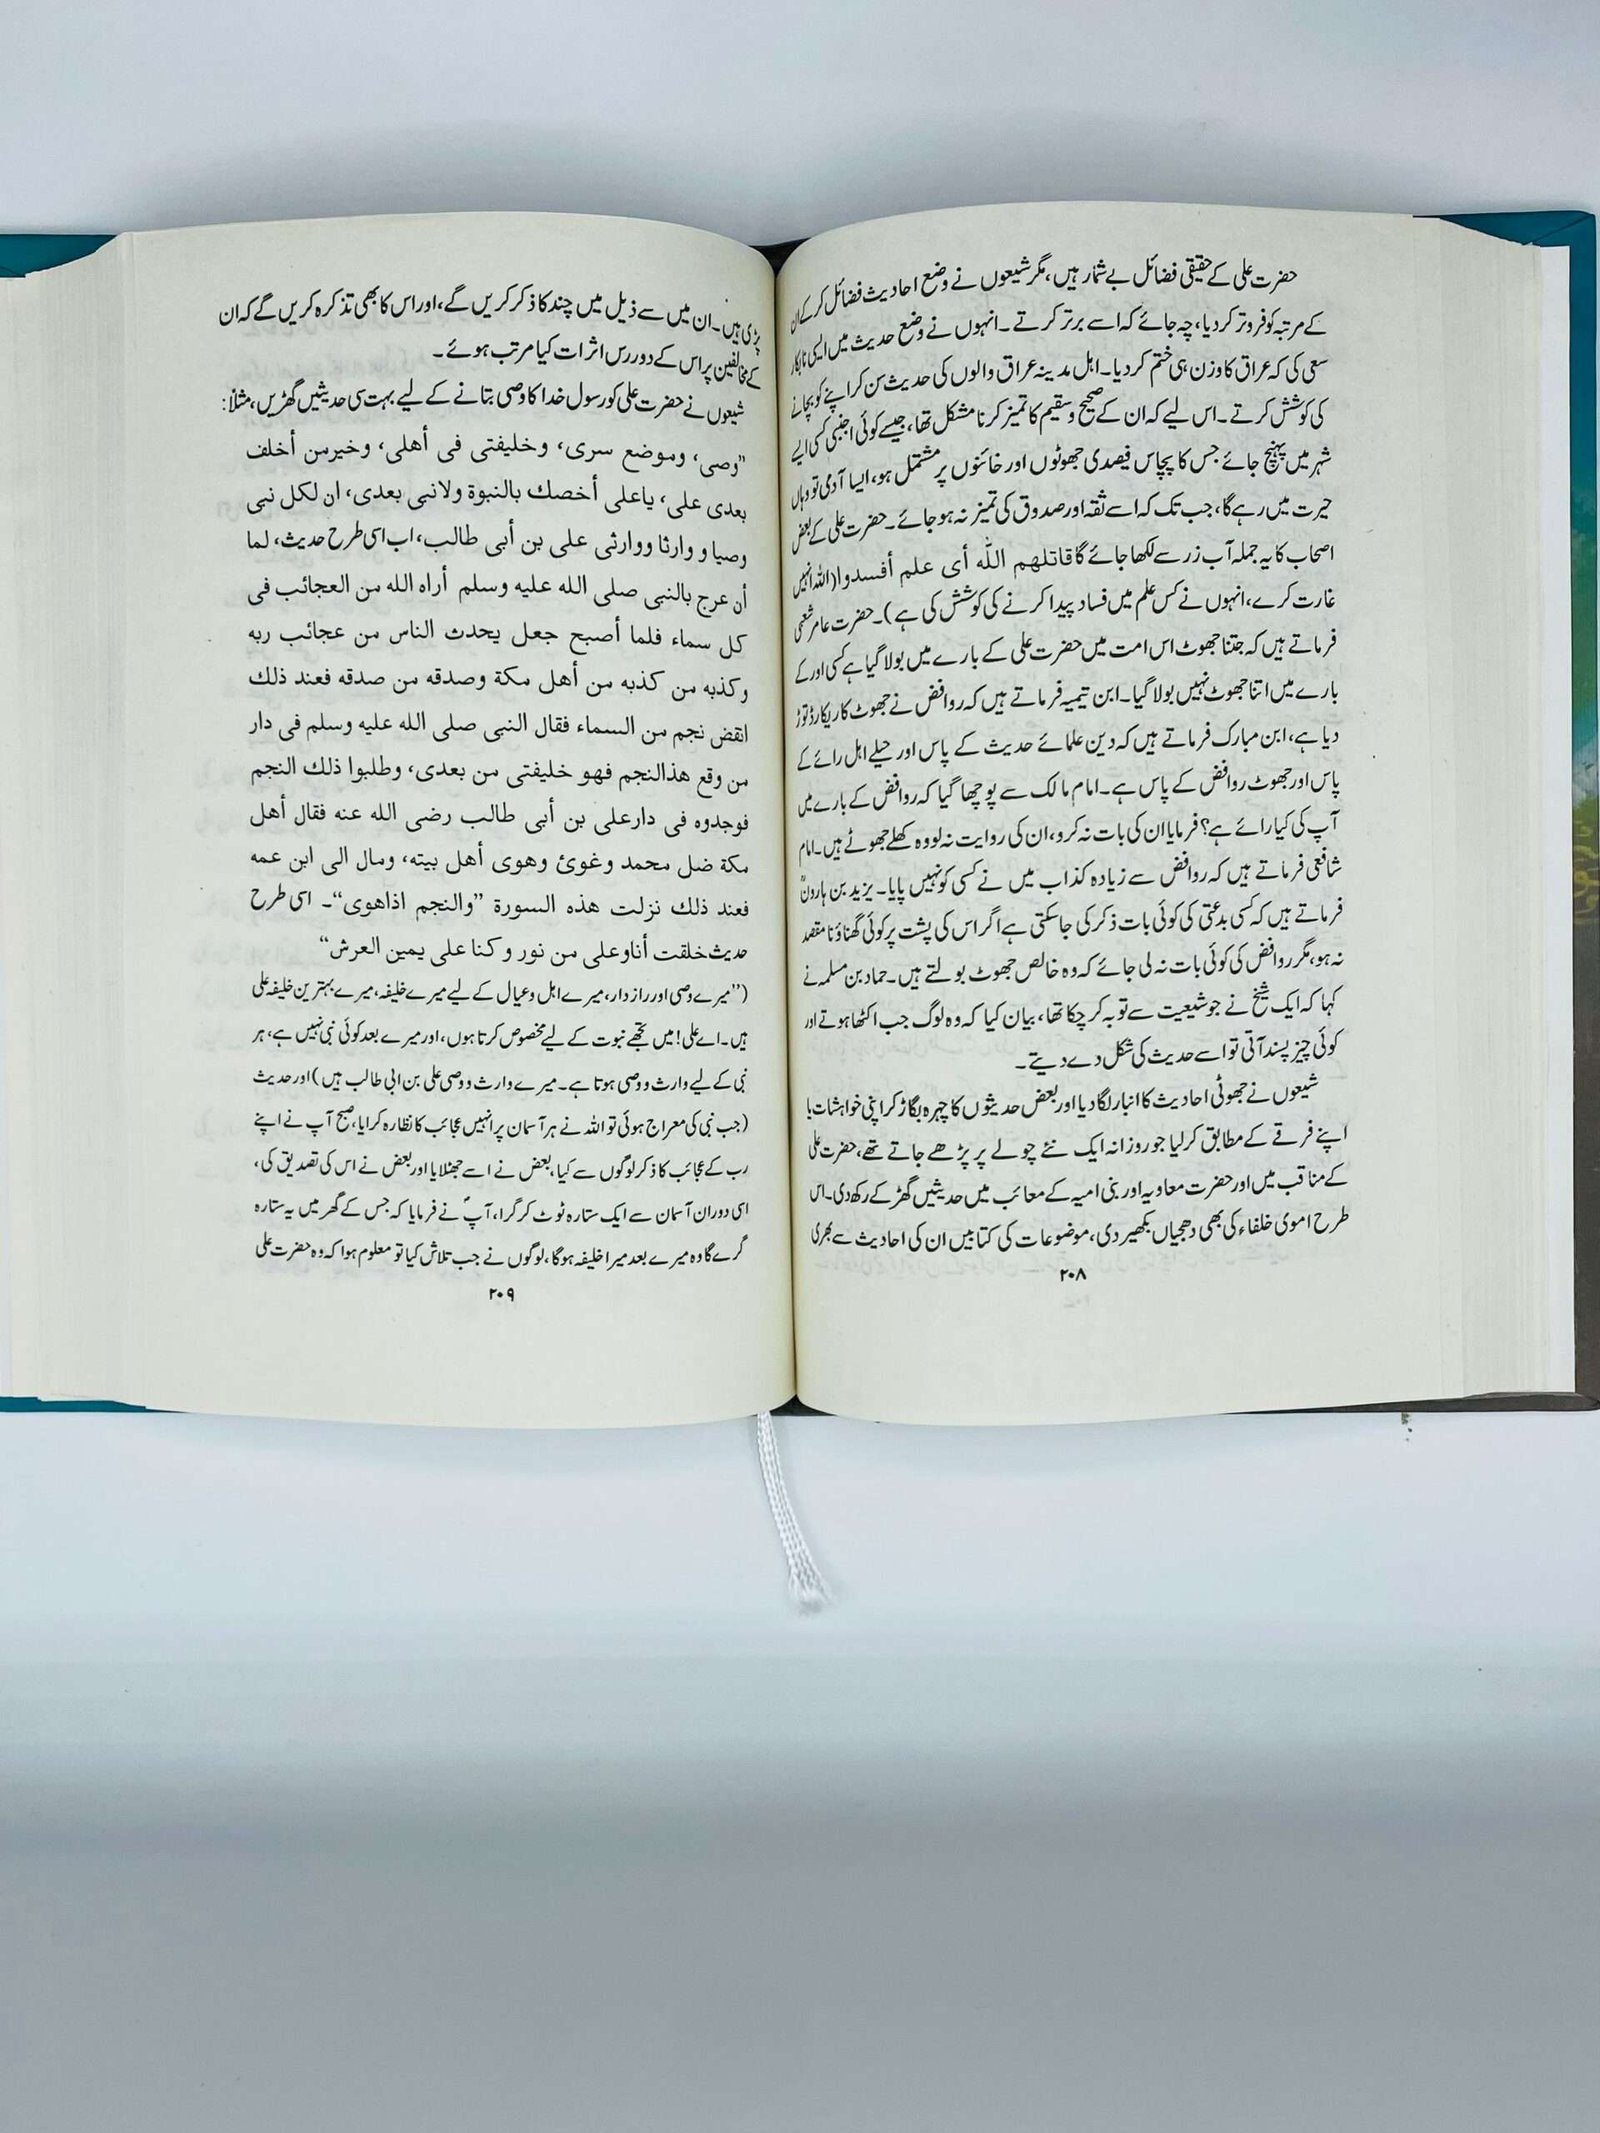 حضرت علی کے حقیقی فضائل بے شمار ہیں، مگر شیعوں نے وضع احادیث فضائل کر کے ان
کے مرتبہ کو فروتر کردیا، چہ جائے کہ اسے برتر کرتے۔ انہوں نے وضع حدیث میں ایسی نابکار
سعی کی کہ عراق کا وزن ہی ختم کردیا۔ اہل مدینہ عراق والوں کی حدیث سن کر اپنے کو بچانے
کی کوشش کرتے۔ اس لیے کہ ان کے صحیح و سقیم کا تمیز کرنا مشکل تھا، جیسے کوئی اجنبی کسی ایسے
شہر میں پہنچ جائے جس کا پچاس فیصدی جھوٹوں اور خائنوں پر مشتمل ہو، ایسا آدمی تو وہاں
حیرت میں رہے گا، جب تک کہ اسے ثقہ اور صدوق کی تمیز نہ ہو جائے۔ حضرت علی کے بعض
اصحاب کا یہ جملہ آب زر سے لکھا جائے گا قاتلهم الله أى علم أفسدوا (اللہ انہیں
غارت کرے، انہوں نے کس علم میں فساد پیدا کرنے کی کوشش کی ہے)۔ حضرت عامر شعبی
فرماتے ہیں کہ جتنا جھوٹ اس امت میں حضرت علی کے بارے میں بولا گیا ہے کسی اور کے
بارے میں اتنا جھوٹ نہیں بولا گیا۔ ابن تیمیہ فرماتے ہیں کہ روافض نے جھوٹ کا ریکارڈ توڑ
دیا ہے، ابن مبارک فرماتے ہیں کہ دین علمائے حدیث کے پاس اور حیلے اہل رائے کے
پاس اور جھوٹ روافض کے پاس ہے۔ امام مالک سے پوچھا گیا کہ روافض کے بارے میں
آپ کی کیا رائے ہے؟ فرمایا ان کی بات نہ کرو، ان کی روایت نہ لو وہ کھلے جھوٹے ہیں۔ امام
شافعی فرماتے ہیں کہ روافض سے زیادہ کذاب میں نے کسی کو نہیں پایا۔ یزید بن ہارونؒ
فرماتے ہیں کہ کسی بدعتی کی کوئی بات ذکر کی جاسکتی ہے اگر اس کی پشت پر کوئی گھناؤنا مقصد
نہ ہو، مگر روافض کی کوئی بات نہ لی جائے کہ وہ خالص جھوٹ بولتے ہیں۔ حماد بن مسلمہ نے
کہا کہ ایک شیخ نے جو شیعیت سے توبہ کرچکا تھا، بیان کیا کہ وہ لوگ جب اکٹھا ہوتے اور
کوئی چیز پسند آتی تو اسے حدیث کی شکل دے دیتے۔
شیعوں نے جھوٹی احادیث کا انبار لگا دیا اور بعض حدیثوں کا چہرہ بگاڑ کر اپنی خواہشات یا
اپنے فرقے کے مطابق کرلیا جو روزانہ ایک نئے چولے پر پڑھے جاتے تھے، حضرت علی
کے مناقب میں اور حضرت معاویہ اور بنی امیہ کے معائب میں حدیثیں گھڑ کے رکھ دی۔ اس
طرح اموی خلفاء کی بھی دھجیاں بکھیر دی، موضوعات کی کتابیں ان کی احادیث سے بھری
۲۰۸
پڑی ہیں۔ ان میں سے ذیل میں چند کا ذکر کریں گے، اور اس کا بھی تذکرہ کریں گے کہ ان
کے مخالفین پر اس کے دور رس اثرات کیا مرتب ہوئے۔
شیعوں نے حضرت علی کو رسول خدا کا وصی بتانے کے لیے بہت سی حدیثیں گھڑیں، مثلاً:
”وصی، وموضع سری، وخلیفتی فی أهلی، وخیرمن أخلف
بعدی علی، یاعلی أخصك بالنبوة ولانبی بعدی، ان لکل نبی
وصیا و وارثا ووارثی علی بن أبی طالب، اب اسی طرح حدیث، لما
أن عرج بالنبی صلی الله علیه وسلم أراه الله من العجائب فی
کل سماء فلما أصبح جعل یحدث الناس من عجائب ربه
وکذبه من کذبه من أهل مکة وصدقه من صدقه فعند ذلك
انقض نجم من السماء فقال النبی صلی الله علیه وسلم فی دار
من وقع هذالنجم فهو خلیفتی من بعدی، وطلبوا ذلك النجم
فوجدوه فی دارعلی بن أبی طالب رضی الله عنه فقال أهل
مکة ضل محمد وغوئ وهوی أهل بیته، ومال الی ابن عمه
فعند ذلك نزلت هذه السورة ”والنجم اذاهوی“۔ اسی طرح
حدیث خلقت أناوعلی من نور وکنا علی یمین العرش“
(”میرے وصی اور راز دار، میرے اہل وعیال کے لیے میرے خلیفہ، میرے بہترین خلیفہ علی
ہیں۔ اے علی! میں تجھے نبوت کے لیے مخصوص کرتا ہوں، اور میرے بعد کوئی نبی نہیں ہے، ہر
نبی کے لیے وارث و وصی ہوتا ہے۔ میرے وارث و وصی علی بن ابی طالب ہیں) اور حدیث
(جب نبی کی معراج ہوئی تو اللہ نے ہر آسمان پر انہیں عجائب کا نظارہ کرایا، صبح آپ نے اپنے
رب کے عجائب کا ذکر لوگوں سے کیا، بعض نے اسے جھٹلایا اور بعض نے اس کی تصدیق کی،
اسی دوران آسمان سے ایک ستارہ ٹوٹ کر گرا، آپؐ نے فرمایا کہ جس کے گھر میں یہ ستارہ
گرے گا وہ میرے بعد میرا خلیفہ ہوگا، لوگوں نے جب تلاش کیا تو معلوم ہوا کہ وہ حضرت علی
۲۰۹